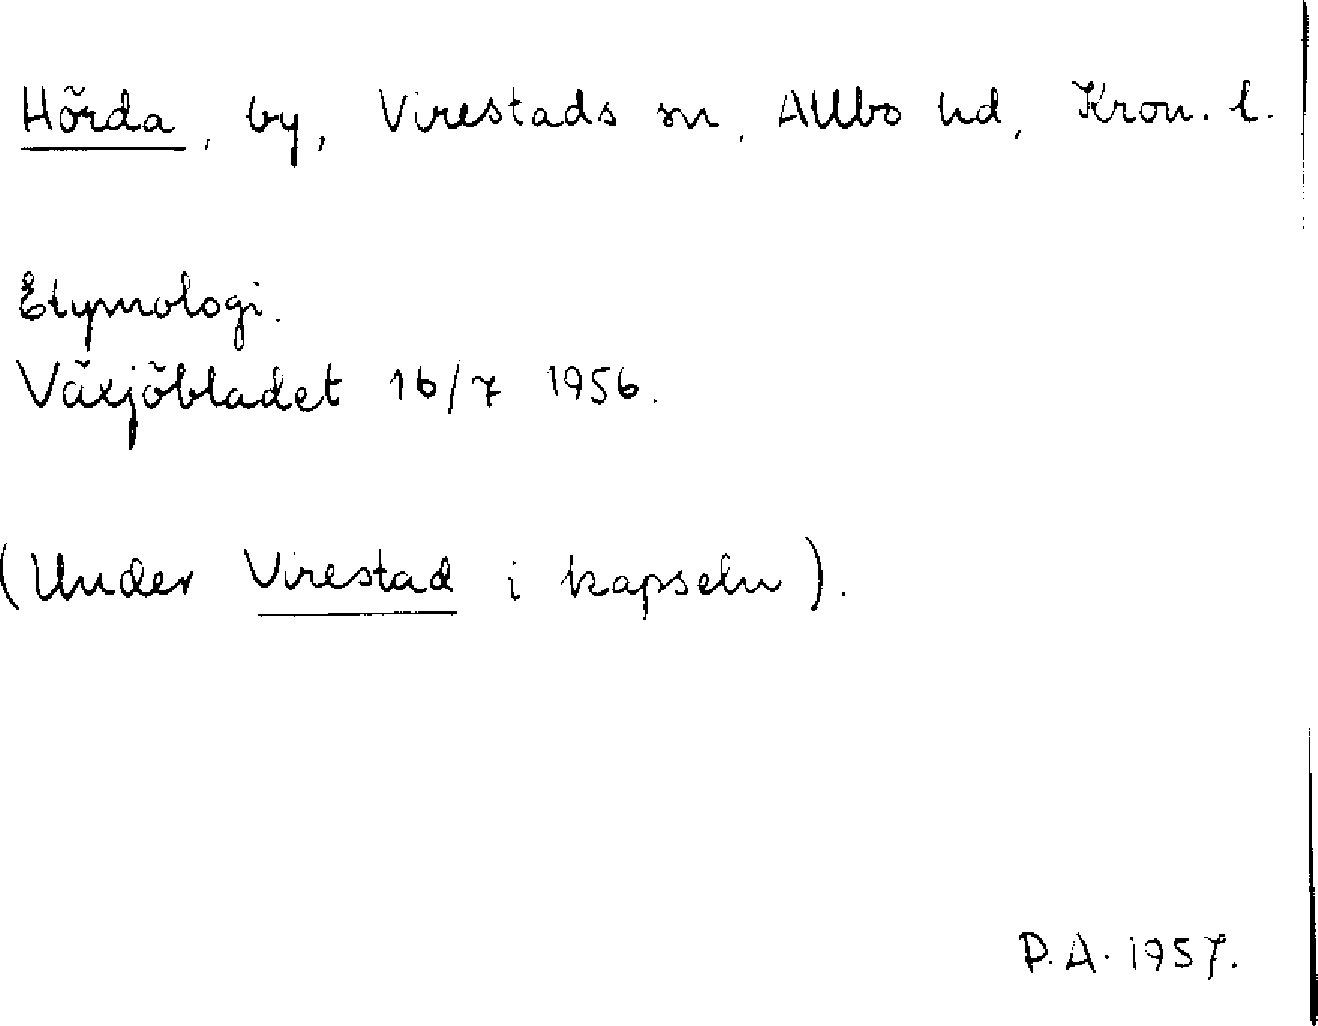 Hörda, by, Virestads sn, Allbo hd, Kron. l.
Etymologi.
Växjöbladet 16/7 1956.
(Under Virestad i kapseln).
P.A. 1957.